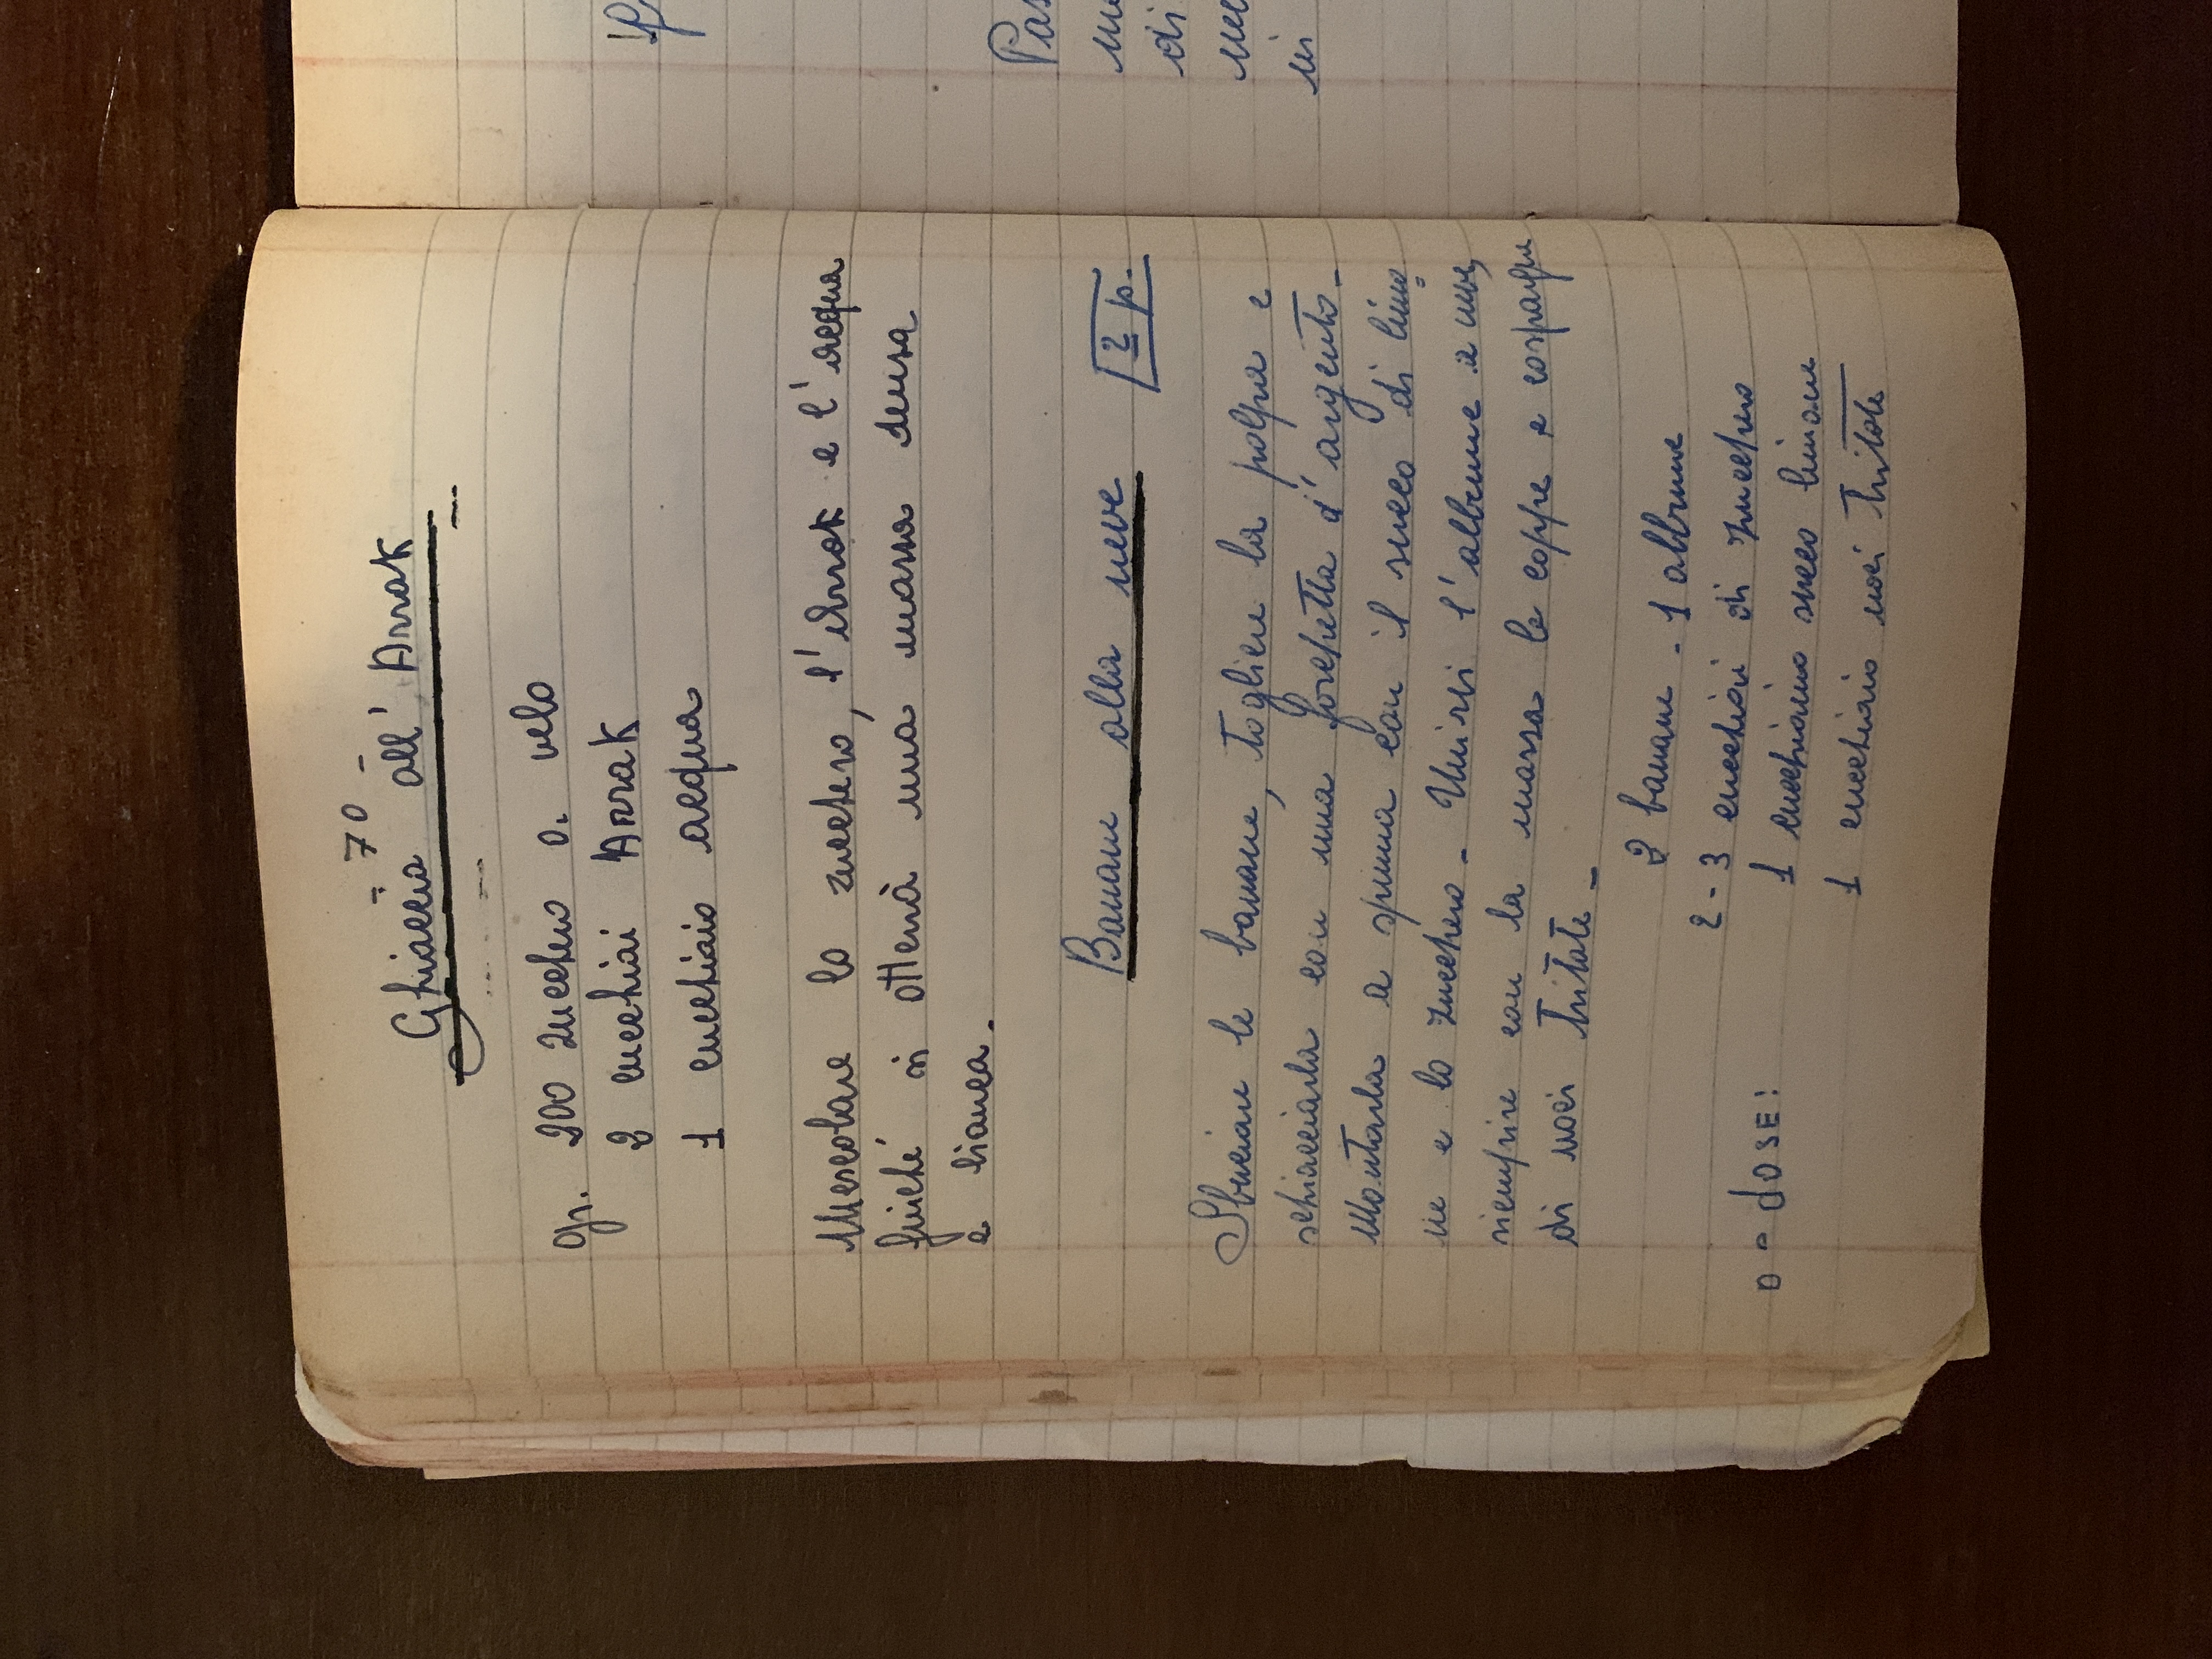 - 70 -
Ghiaccia all' Arrak
gr. 200 zucchero a. velo
2 cucchiai Arrak
1 cucchiaio acqua
Mescolare lo zucchero, l'Arrak e l'acqua
finché si otterrà una massa densa
e bianca.
Banane alla neve 2 p.
Sbucciare le banane, togliere la polpa e
schiacciarla con una forchetta d'argento -
Montarla a spuma con il succo di limo
ne e lo zucchero - Unirvi l'albume a neve,
riempire con la massa le coppe e cospargere
di noci tritate -
2 banane - 1 albume
2 - 3 cucchiai di zucchero
DOSE:
1 cucchiaino succo limone
1 cucchiaio noci tritate
Pas
di